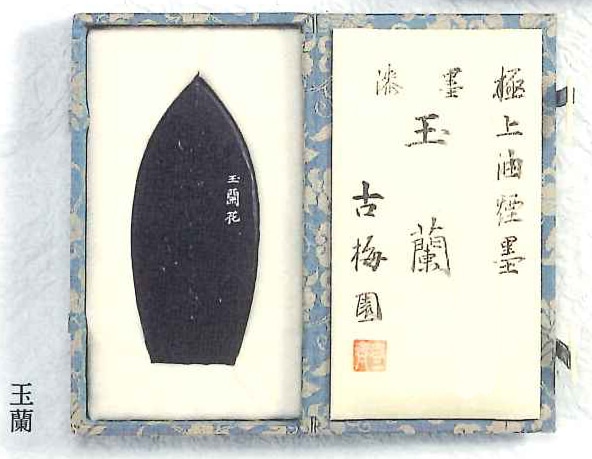 極上油煙墨
墨漆
玉蘭
古梅園
玉蘭花
玉蘭